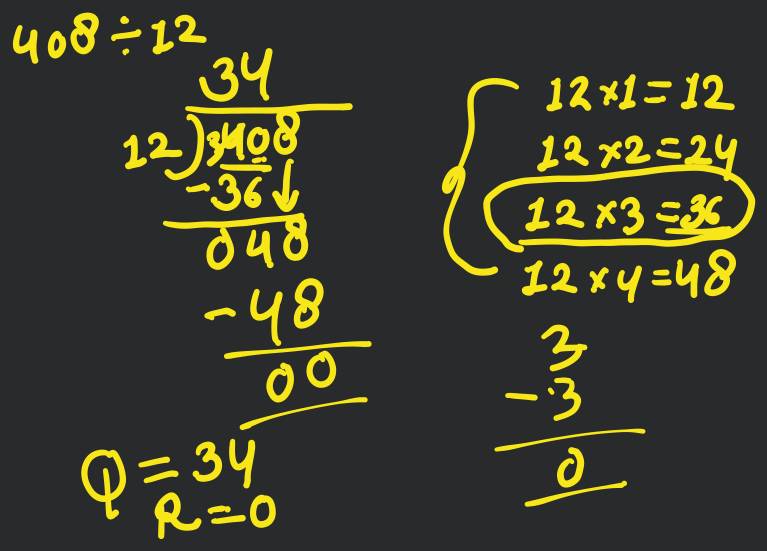 408 ÷ 12
34
12)3408
-36↓
048
-48
00
Q = 34
R = 0
12 × 1 = 12
12 × 2 = 24
12 × 3 = 36
12 × 4 = 48
3
-3
0